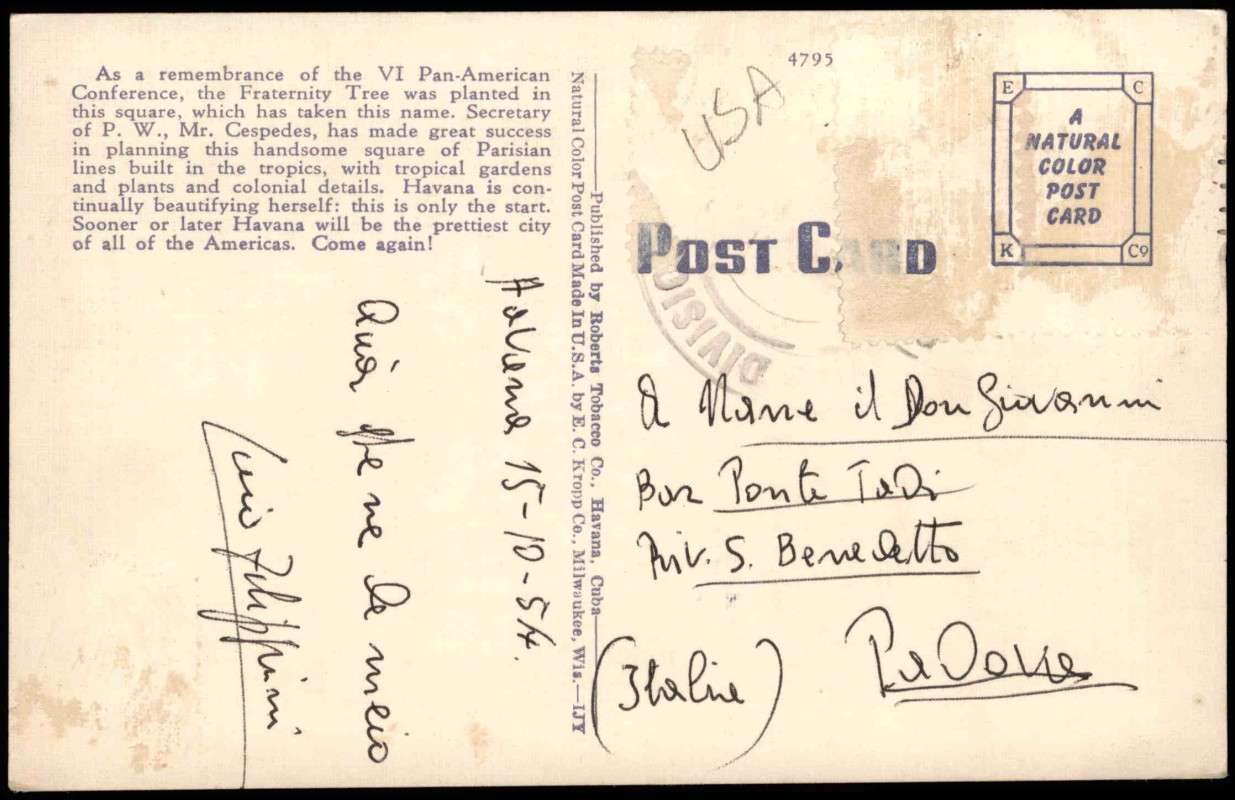 As a remembrance of the VI Pan-American
Conference, the Fraternity Tree was planted in
this square, which has taken this name. Secretary
of P. W., Mr. Cespedes, has made great success
in planning this handsome square of Parisian
lines built in the tropics, with tropical gardens
and plants and colonial details. Havana is con-
tinually beautifying herself: this is only the start.
Sooner or later Havana will be the prettiest city
of all of the Americas. Come again!
Havana 15-10-54.
Filippini
Published by Roberts Tobacco Co., Havana, Cuba
Natural Color Post Card Made In U.S.A. by E. C. Kropp Co., Milwaukee, Wis.—IJY
4795
USA
E C
A
NATURAL
COLOR
POST
CARD
K C9
POST CARD
DIVISIO
il Don Giovanni
Bar Ponte Tadi
Riv. S. Benedetto
Padova
(Italia)